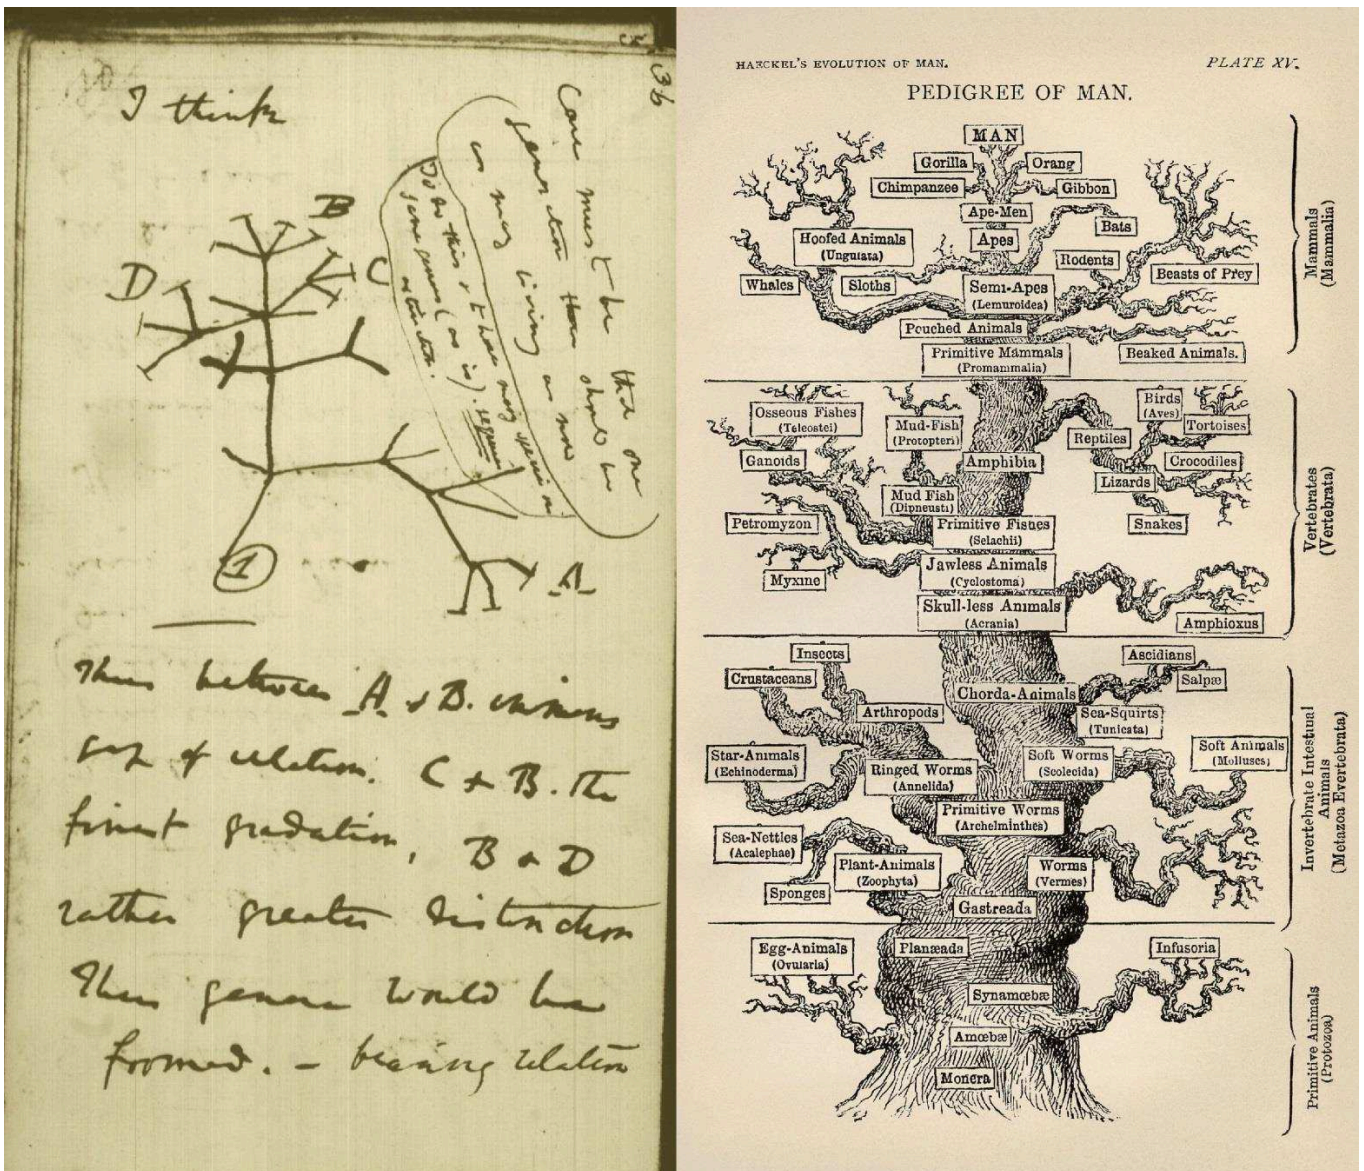 36
I think
Case must be that one
generation then should be
as many living as now
To do this & to have many species in
same genus (as is). requires
extinction.
B
C
D
A
1
Thus between A & B. immense
gap of relation. C & B. the
finest gradation, B & D
rather greater distinction
Thus genera would be
formed. — bearing relation
HAECKEL'S EVOLUTION OF MAN.
PLATE XV.
PEDIGREE OF MAN.
MAN
Gorilla
Orang
Chimpanzee
Gibbon
Ape-Men
Bats
Hoofed Animals
(Ungulata)
Apes
Rodents
Beasts of Prey
Whales
Sloths
Semi-Apes
(Lemuroidea)
Pouched Animals
Primitive Mammals
(Promammalia)
Beaked Animals.
Mammals
(Mammalia)
Osseous Fishes
(Teleostei)
Mud-Fish
(Protopteri)
Birds
(Aves)
Tortoises
Reptiles
Ganoids
Amphibia
Crocodiles
Lizards
Mud Fish
(Dipneusti)
Petromyzon
Primitive Fishes
(Selachii)
Snakes
Myxine
Jawless Animals
(Cyclostoma)
Skull-less Animals
(Acrania)
Amphioxus
Vertebrates
(Vertebrata)
Insects
Ascidians
Crustaceans
Salpæ
Chorda-Animals
Arthropods
Sea-Squirts
(Tunicata)
Star-Animals
(Echinoderma)
Ringed Worms
(Annelida)
Soft Worms
(Scolecida)
Soft Animals
(Molluscs)
Primitive Worms
(Archelminthes)
Sea-Nettles
(Acalephae)
Plant-Animals
(Zoophyta)
Worms
(Vermes)
Sponges
Gastreada
Invertebrate Intestinal
Animals
(Metazoa Evertebrata)
Egg-Animals
(Ovularia)
Planæada
Infusoria
Synamœbæ
Amœbæ
Monera
Primitive Animals
(Protozoa)